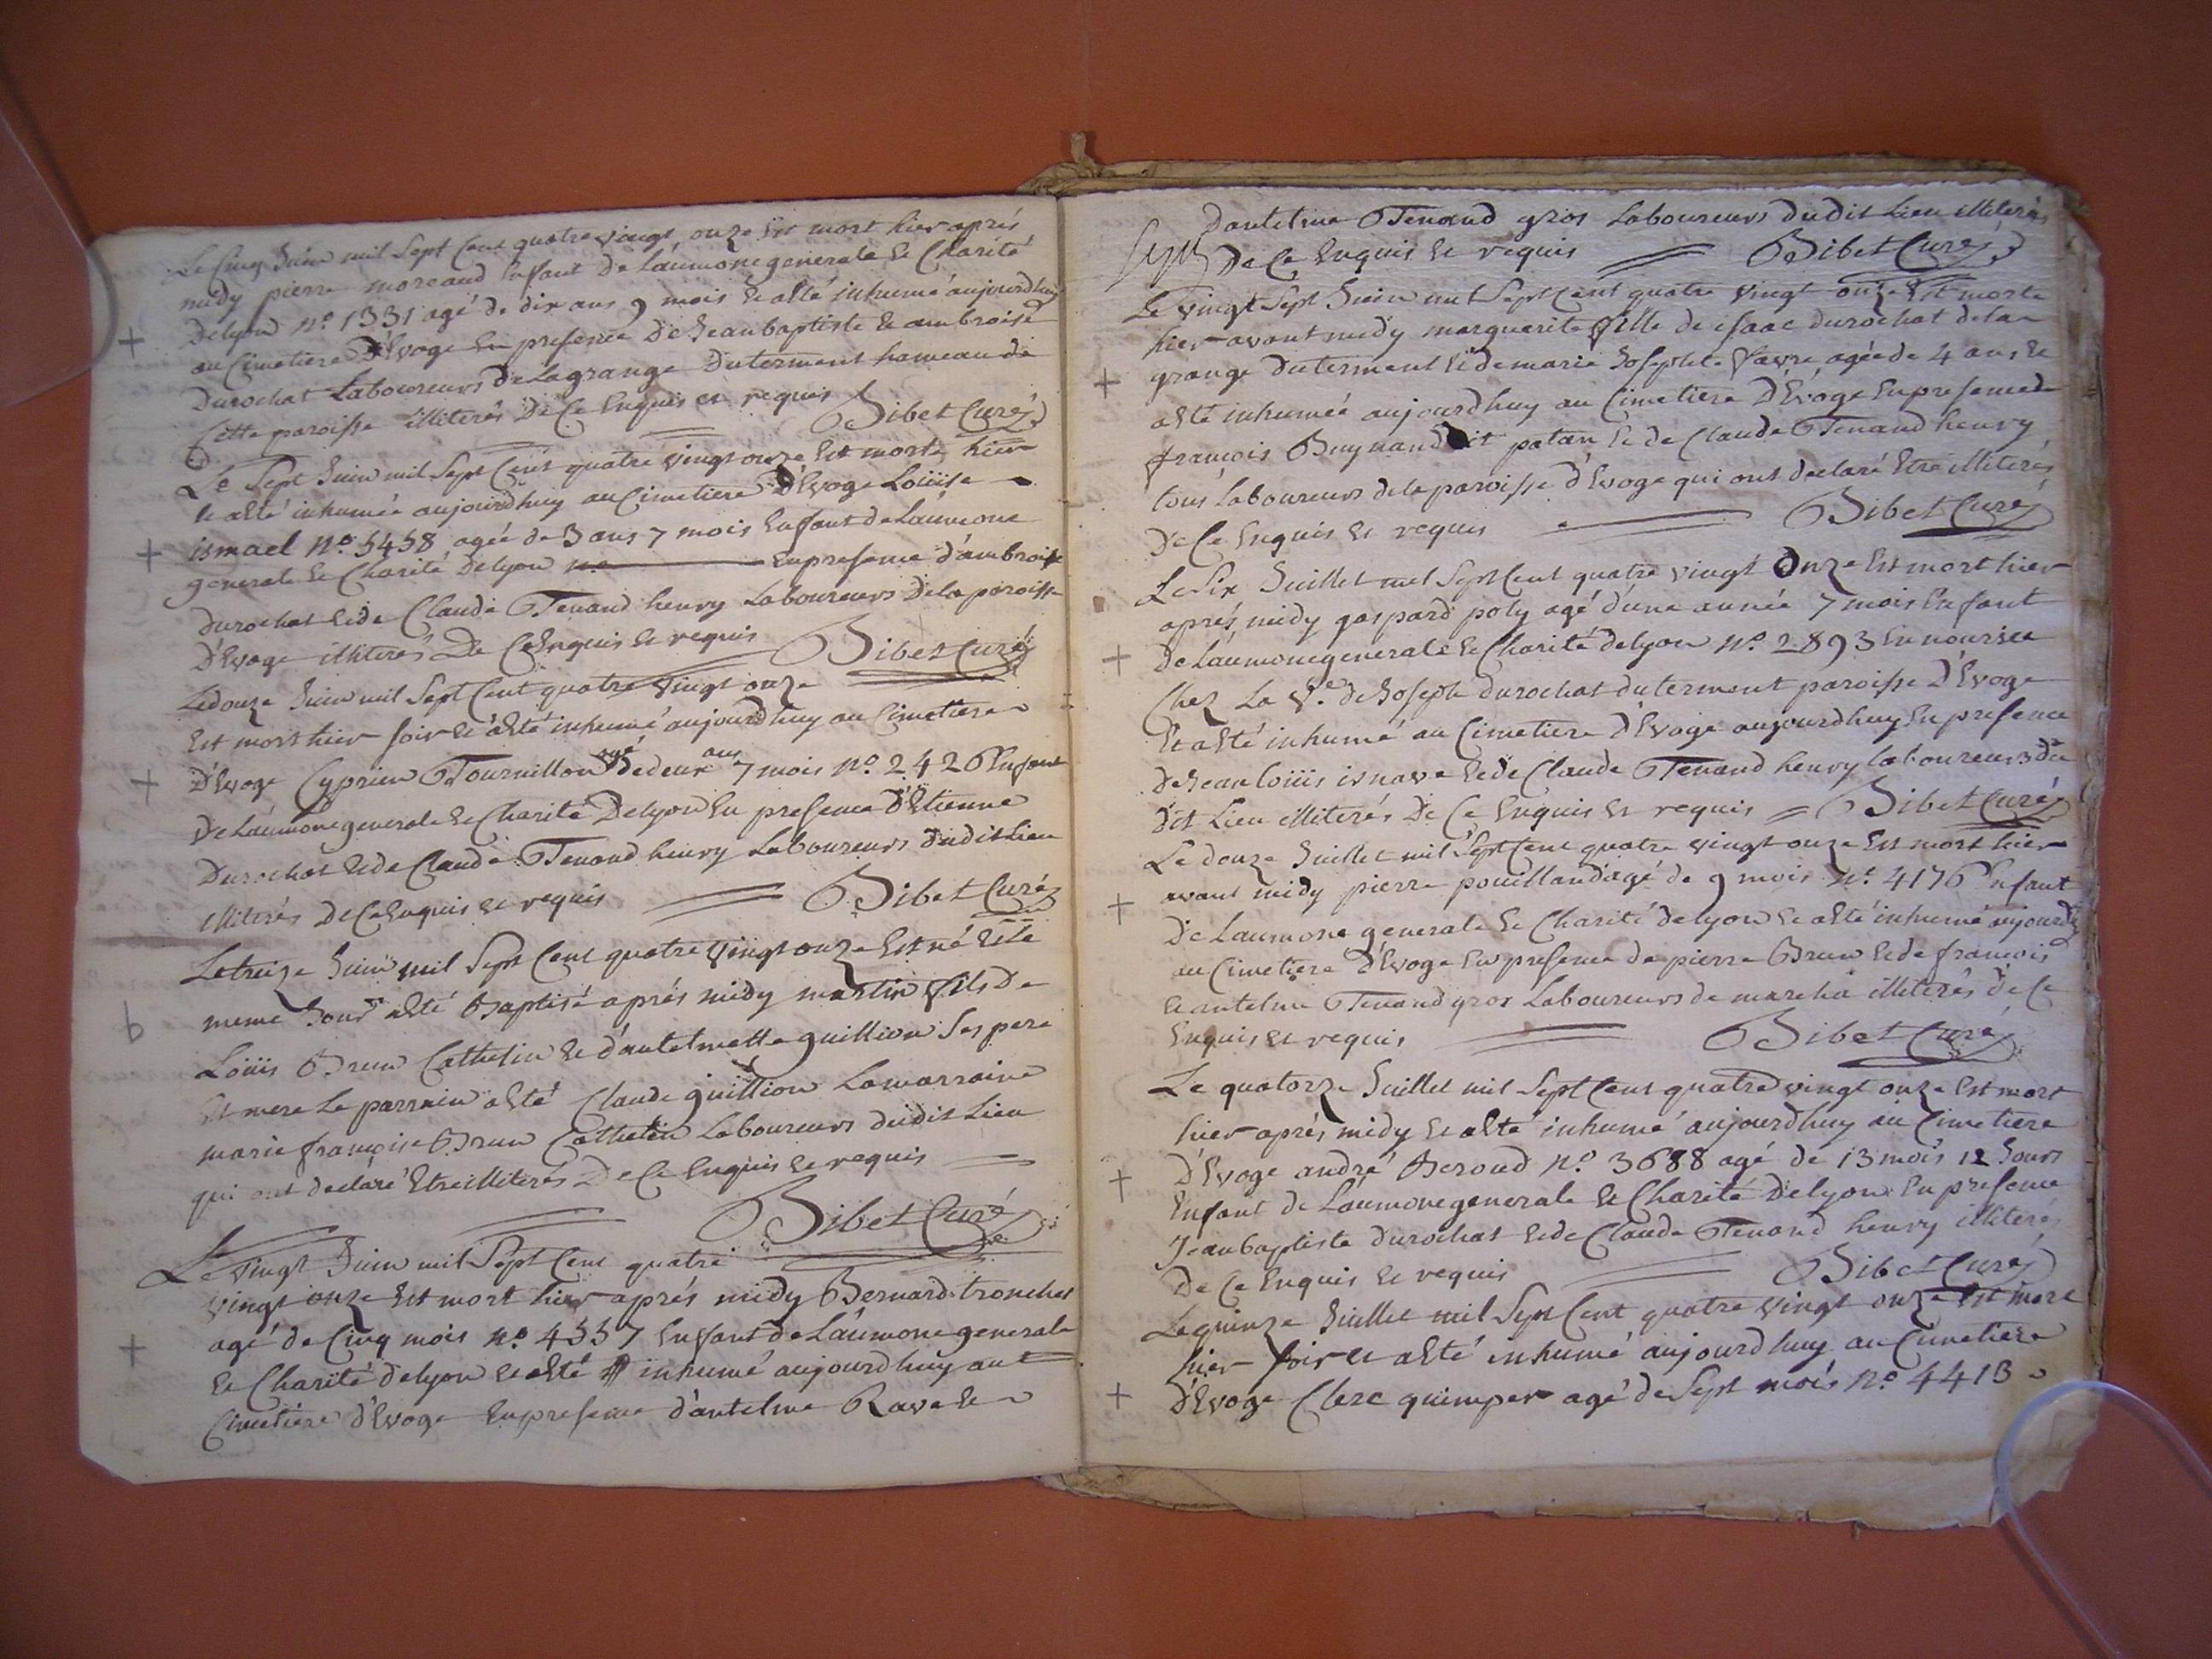 Le Cinq Juin mil Sept Cent quatre vingt onze Est mort hier aprés
midy pierre moreaud Enfant De Laumone generale Et Charité
Delyon n.º 1331 agé de dix ans 9 mois Et a Eté inhumé aujourdhuy
+ au Cimetiere D'Evoge En presence De Jean baptiste Et ambroise
Durochat Laboureurs De Lagrange Duterment hameau de
Cette paroisse illiterés De Ce Enquis et requis Bibet Curé
Le Sept Juin mil Sept Cent quatre vingt onze Est morte hier
Et a Eté inhumée aujourdhuy au Cimetiere D'Evoge Loüise
+ ismael N.º 3438 agée de 3 ans 7 mois Enfant de Laumone
generale Et Charité Delyon En presence d'ambroise
Durochat Et de Claude Tenand henry Laboureurs De la paroisse
D'Evoge illiterés De Ce Enquis Et requis Bibet Curé
Le douze Juin mil Sept Cent quatre vingt onze
Est mort hier soir Et a Eté inhumé aujourdhuy au Cimetiere
+ D'Evoge Cyprien Tournillon agé de deux ans 7 mois n.º 2426 Enfant
De Laumone generale Et Charité Delyon En presence D'Etienne
Durochat Et de Claude Tenand henry Laboureurs Dudit Lieu
illiterés De Ce Enquis et requis Bibet Curé
Le treize Juin mil Sept Cent quatre vingt onze Est né Et Le
b meme Jour a Eté Baptisé aprés midy martin fils De
Loüis Brun Cathelin Et d'antelmette guillion Ses pere
Et mere Le parrain a Eté Claude guillion La marraine
marie françoise Brun Cathelin Laboureurs dudit Lieu
qui ont declaré Etre illiterés De Ce Enquis Et requis
Bibet Curé
Le vingt Juin mil Sept Cent quatre
vingt onze Est mort hier aprés midy Bernard tronchet
+ agé de Cinq mois n.º 4357 Enfant de Laumone generale
Et Charité delyon Et a Eté inhumé aujourdhuy au
Cimetiere d'Evoge En presence d'antelme Rava Et
Dantelme Tenand gros Laboureurs dudit Lieu illiterés
De Ce Enquis Et requis Bibet Curé
Le vingt Sept Juin mil Sept Cent quatre vingt onze Est morte
hier avant midy marguerite fille de isaac durochat de la
+ grange duterment Et de marie Josephte favre agée de 4 ans Et
a Eté inhumée aujourdhuy au Cimetiere D'Evoge En presence de
françois Buynand dit patan Et de Claude Tenand henry
tous Laboureurs de la paroisse d'Evoge qui ont declaré Etre illiterés
De Ce Enquis Et requis Bibet Curé
Le Six Juillet mil Sept Cent quatre vingt Onze Est mort hier
aprés midy gaspard poly agé d'une année 7 mois Enfant
+ De Laumone generale Et Charité delyon N.º 2893 En nourice
Chez La V.e de Joseph durochat duterment paroisse D'Evoge
Et a Eté inhumé au Cimetiere D'Evoge aujourdhuy En presence
de Jean Loüis isnava Et de Claude Tenand henry laboureurs du
dit Lieu illiterés De Ce Enquis Et requis Bibet Curé
Le douze Juillet mil Sept Cent quatre vingt onze Est mort hier
+ avant midy pierre pouilland agé de 9 mois N.º 4176 Enfant
De Laumone generale Et Charité delyon Et a Eté inhumé aujourd'hy
au Cimetiere D'Evoge En presence de pierre Brun Et de françois
Et antelme Tenand gros Laboureurs de marcha illiterés de Ce
Enquis Et requis Bibet Curé
Le quatorze Juillet mil Sept Cent quatre vingt onze Est mort
hier aprés midy Et a Eté inhumé aujourdhuy au Cimetiere
+ D'Evoge andré Beroud N.º 3688 agé de 13 mois 12 Jours
Enfant de Laumone generale Et Charité Delyon En presence
Jean baptiste durochat Et de Claude Tenand henry illiterés
De Ce Enquis Et requis Bibet Curé
Le quinze Juillet mil Sept Cent quatre vingt onze Est mort
hier soir Et a Eté inhumé aujourdhuy au Cimetiere
+ D'Evoge Clerc quimper agé de Sept mois N.º 4413